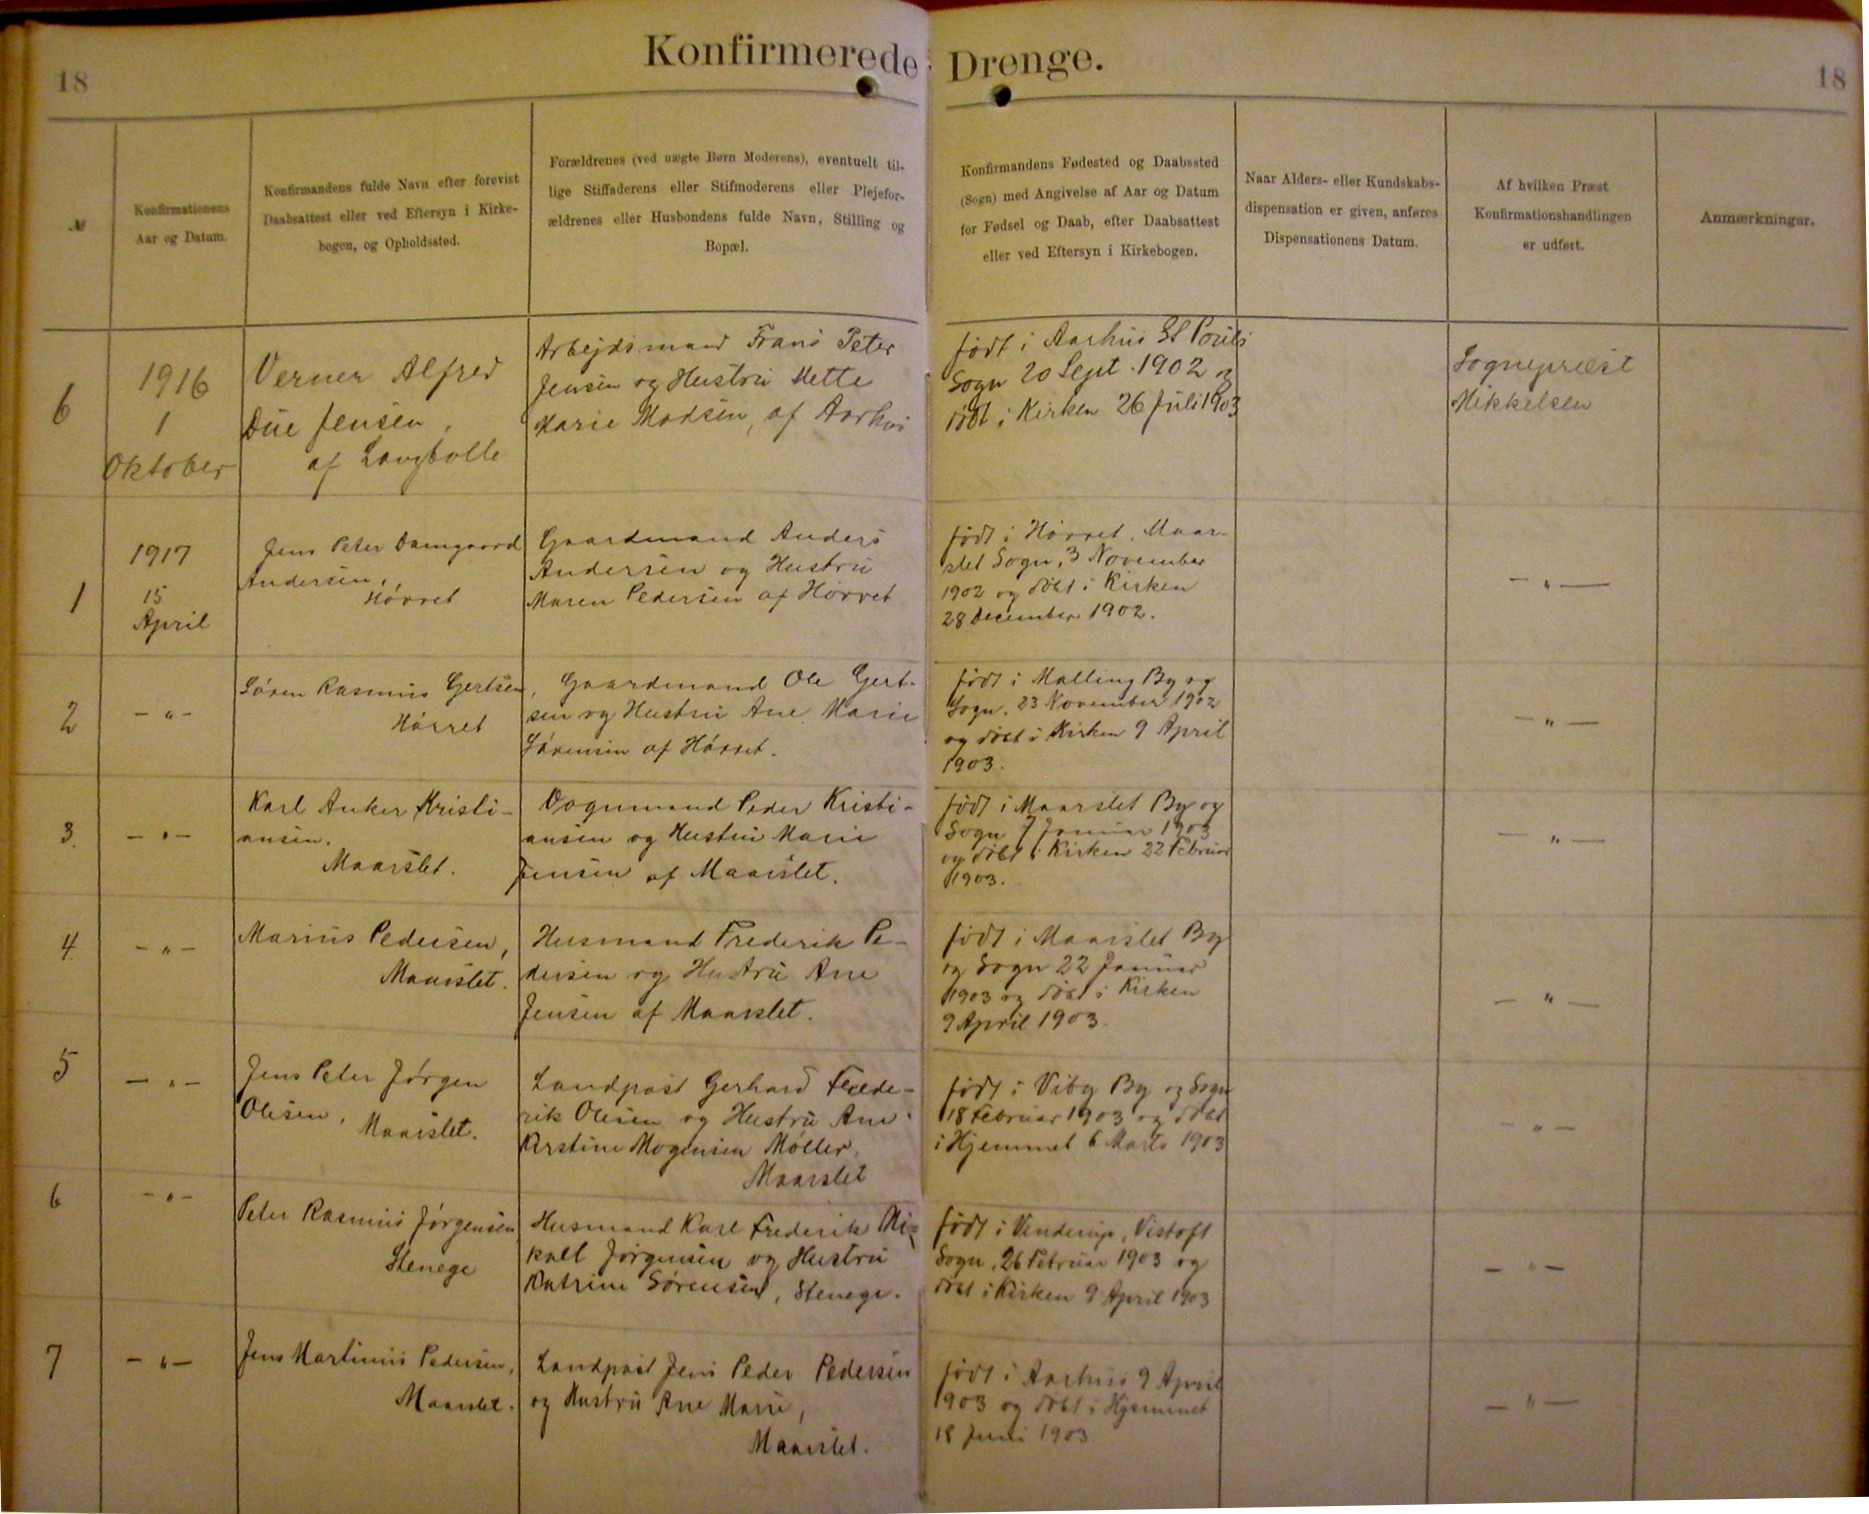 18
Konfirmerede Drenge.
18
№
Konfirmationens
Aar og Datum.
Konfirmandens fulde Navn efter forevist
Daabsattest eller ved Eftersyn i Kirke-
bogen, og Opholdssted.
Forældrenes (ved uægte Børn Moderens), eventuelt til-
lige Stiffaderens eller Stifmoderens eller Plejefor-
ældrenes eller Husbondens fulde Navn, Stilling og
Bopæl.
Konfirmandens Fødested og Daabssted
(Sogn) med Angivelse af Aar og Datum
for Fødsel og Daab, efter Daabsattest
eller ved Eftersyn i Kirkebogen.
Naar Alders- eller Kundskabs-
dispensation er given, anføres
Dispensationens Datum.
Af hvilken Præst
Konfirmationshandlingen
er udført.
Anmærkninger.
6
1916
1
Oktober
Verner Alfred
Due Jensen,
af Langballe
Arbejdsmand Frans Peter
Jensen og Hustru Mette
Marie Madsen, af Aarhus
født i Aarhus St Pouls
Sogn 20 Sept. 1902 og
døbt i Kirken 26 Juli 1903
Sognepræst
Mikkelsen
1
1917
15
April
Jens Peter Damgaard
Andersen,
Hørret
Gaardmand Anders
Andersen og Hustru
Maren Pedersen af Hørret
født i Hørret, Maar-
slet Sogn, 3 November
1902 og døbt i Kirken
28 December 1902.
— " —
2
— " —
Søren Rasmus Gertsen,
Hørret
Gaardmand Ole Gert-
sen og Hustru Ane Marie
Sørensen af Hørret.
født i Malling By og
Sogn. 23 November 1902
og døbt i Kirken 9 April
1903.
— " —
3.
— " —
Karl Anker Kristi-
ansen.
Maarslet.
Vognmand Peder Kristi-
ansen og Hustru Marie
Jensen af Maarslet.
født i Maarslet By og
Sogn 7 Januar 1903
og døbt i Kirken 22 Februar
1903.
— " —
4
— " —
Marius Pedersen,
Maarslet.
Husmand Frederik Pe-
dersen og Hustru Ane
Jensen af Maarslet.
født i Maarslet By
og Sogn 22 Januar
1903 og døbt i Kirken
9 April 1903.
— " —
5
— " —
Jens Peter Jørgen
Olesen, Maarslet.
Landpost Gerhard Frede-
rik Olesen og Hustru Ane
Kirstine Mogensen Møller,
Maarslet
født i Viby By og Sogn
18 Februar 1903 og døbt
i Hjemmet 6 Marts 1903
— " —
6
— " —
Peter Rasmus Jørgensen
Stenege
Husmand Karl Frederik Mi-
kall Jørgensen og Hustru
Katrine Sørensen, Stenege.
født i Vinderup, Vistoft
Sogn, 26 Februar 1903 og
døbt i Kirken 9 April 1903
— " —
7
— " —
Jens Martinus Pedersen,
Maarslet.
Landpost Jens Peder Pedersen
og Hustru Ane Marie,
Maarslet.
født i Aarhus 9 April
1903 og døbt i Hjemmet
18 Juni 1903
— " —